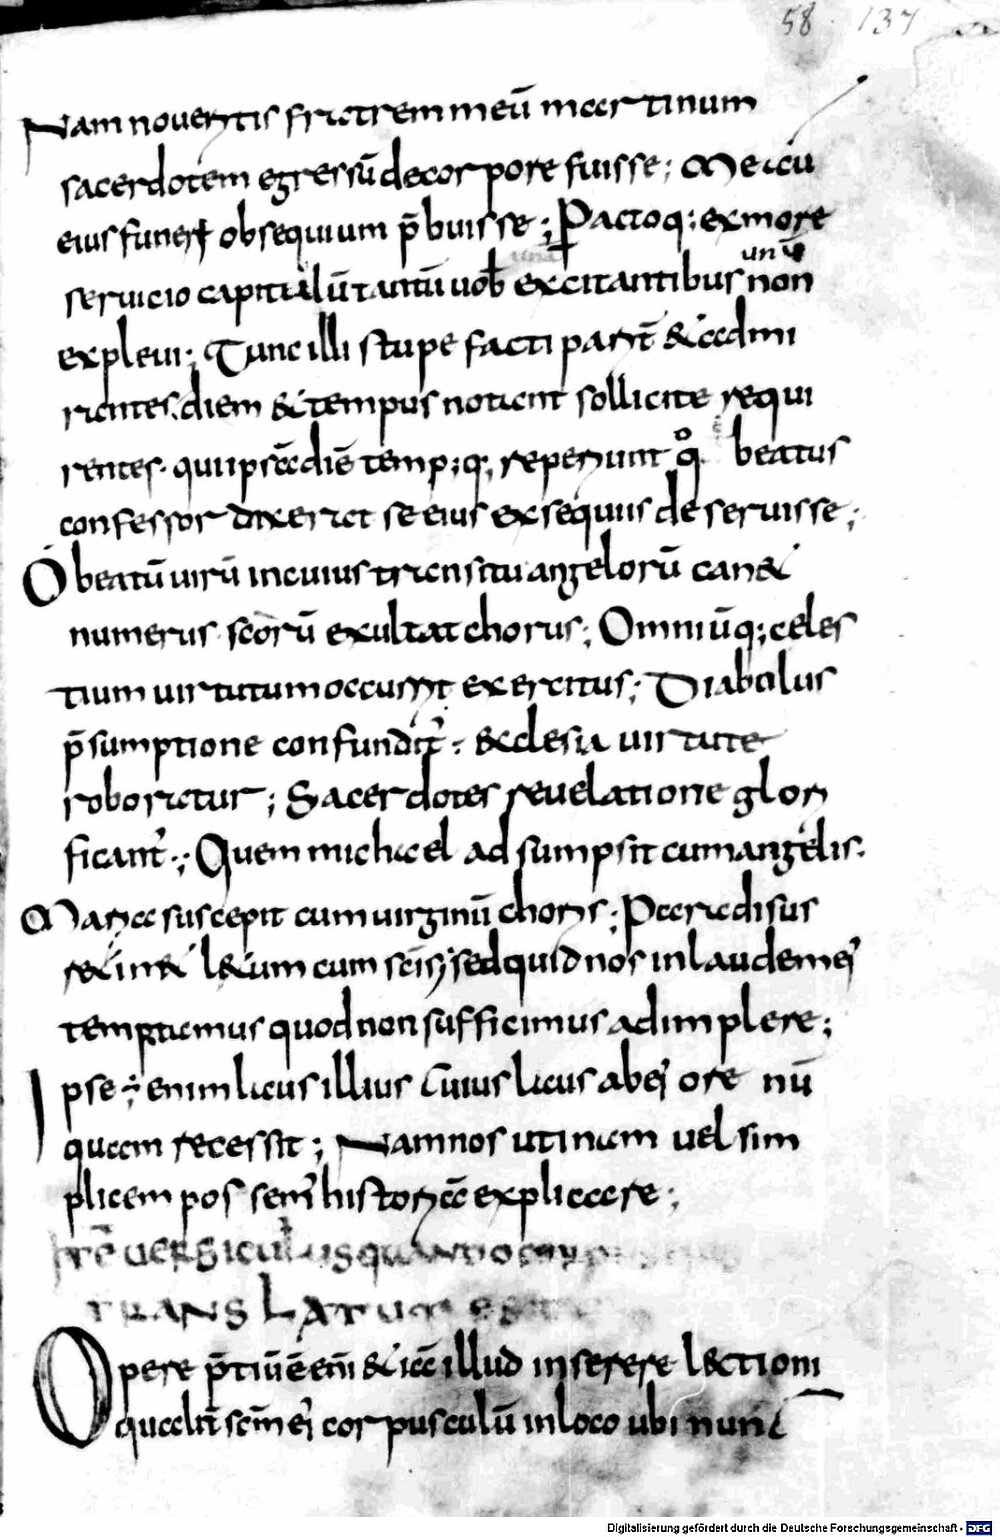 58 137
Nam noueritis fratrem meū martinum
sacerdotem egressū de corpore fuisse; Me aū
eius funeri obsequium p̄buisse; Pactoq: ex more
una
unū
seruicio capitulū tantū uob excitantibus non
expleui; Tunc illi stupe facti parit̄ & admi
rantes. diem & tempus notant sollicite requi
rentes. qui ipsā diē temp;q; reperiunt qº beatus
confessor dixerat se eius exsequiis deseruisse;
O beatū uirū in cuius transitu angelorū can&
numerus scōrū exultat chorus; Omniūq; celes
tium uirtutum occurrit exercitus; Diabolus
p̄sumptione confundit᷑; &clesia uirtute
roboratur; Sacerdotes reuelatione glori
ficant᷑; Quem michael adsumpsit cum angelis.
Maria suscepit cum uirginū choris; Paradisus
r&in& l&um cum scīs; sed quid nos in laudem ei
temptamus quod non sufficimus adimplere;
Ipse ÷ enim laus illius cuius laus ab ei ore nū
quam recessit; Nam nos utinam uel sim
plicem possem' historiā explicare;
uersiculus
translatus
Opere p̄tiū ē enī & iā illud inserere l&tioni
qualit̄ scm̄ ei corpusculū in loco ubi nunc
Digitalisierung gefördert durch die Deutsche Forschungsgemeinschaft - DFG